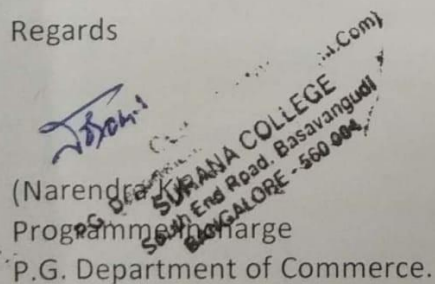 Regards
(Narendra
Programme Incharge
P.G. Department of Commerce.
.Com)
P.G.
SURANA COLLEGE
South End Road, Basavangudi
BANGALORE - 560 004